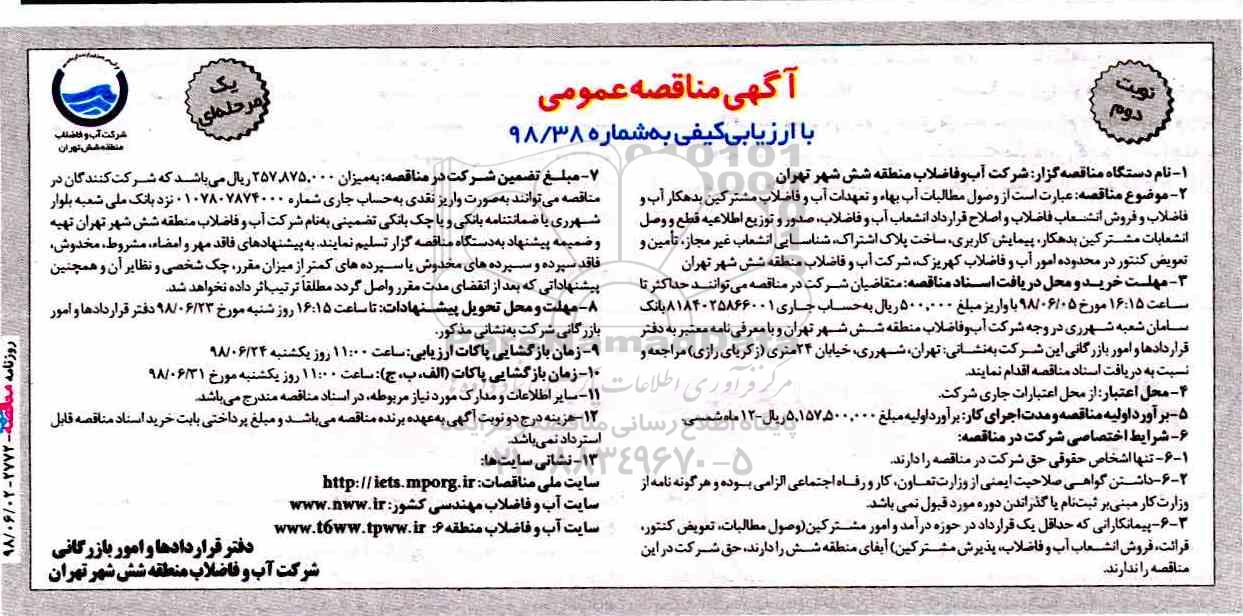 آگهی مناقصه عمومی
با ارزیابی کیفی به‌شماره ۹۸/۳۸
نوبت
دوم
یک
مرحله‌ای
شرکت آب و فاضلاب
منطقه شش تهران
۱- نام دستگاه مناقصه گزار: شرکت آب‌وفاضلاب منطقه شش شهر تهران
۲- موضوع مناقصه: عبارت است از وصول مطالبات آب بهاء و تعهدات آب و فاضلاب مشترکین بدهکار آب و
فاضلاب و فروش انشعاب فاضلاب و اصلاح قرارداد انشعاب آب و فاضلاب، صدور و توزیع اطلاعیه قطع و وصل
انشعابات مشترکین بدهکار، پیمایش کاربری، ساخت پلاک اشتراک، شناسایی انشعاب غیر مجاز، تأمین و
تعویض کنتور در محدوده امور آب و فاضلاب کهریزک، شرکت آب و فاضلاب منطقه شش شهر تهران
۳- مهلت خرید و محل دریافت اسناد مناقصه: متقاضیان شرکت در مناقصه می‌توانند حداکثر تا
ساعت ۱۶:۱۵ مورخ ۹۸/۰۶/۰۵ با واریز مبلغ ۵۰۰,۰۰۰ ریال به‌حساب جاری ۸۱۸۴۰۲۵۸۶۶۰۰۱ بانک
سامان شعبه شهرری در وجه شرکت آب‌وفاضلاب منطقه شش شهر تهران و با معرفی‌نامه معتبر به دفتر
قراردادها و امور بازرگانی این شرکت به‌نشانی: تهران، شهرری، خیابان ۲۴متری (زکریای رازی) مراجعه و
نسبت به دریافت اسناد مناقصه اقدام نمایند.
۴- محل اعتبار: از محل اعتبارات جاری شرکت.
۵- برآورد اولیه مناقصه و مدت اجرای کار: برآورد اولیه مبلغ ۵,۱۵۷,۵۰۰,۰۰۰ ریال-۱۲ ماه شمسی.
۶- شرایط اختصاصی شرکت در مناقصه:
۶-۱- تنها اشخاص حقوقی حق شرکت در مناقصه را دارند.
۶-۲- داشتن گواهی صلاحیت ایمنی از وزارت تعاون، کار و رفاه اجتماعی الزامی بوده و هر گونه نامه از
وزارت کار مبنی بر ثبت‌نام یا گذراندن دوره مورد قبول نمی باشد.
۶-۳- پیمانکارانی که حداقل یک قرارداد در حوزه درآمد و امور مشترکین(وصول مطالبات، تعویض کنتور،
قرائت، فروش انشعاب آب و فاضلاب، پذیرش مشترکین) آبفای منطقه شش را دارند، حق شرکت در این
مناقصه را ندارند.
۷- مبلغ تضمین شرکت در مناقصه: به‌میزان ۲۵۷,۸۷۵,۰۰۰ ریال می‌باشد که شرکت کنندگان در
مناقصه می‌توانند به‌صورت واریز نقدی به‌حساب جاری شماره ۰۱۰۷۸۰۷۸۷۴۰۰۰ نزد بانک ملی شعبه بلوار
شهرری یا ضمانتنامه بانکی و یا چک بانکی تضمینی به‌نام شرکت آب و فاضلاب منطقه شش شهر تهران تهیه
و ضمیمه پیشنهاد به‌دستگاه مناقصه گزار تسلیم نمایند. به پیشنهادهای فاقد مهر و امضاء، مشروط، مخدوش،
فاقد سپرده و سپرده های مخدوش یا سپرده های کمتر از میزان مقرر، چک شخصی و نظایر آن و همچنین
پیشنهاداتی که بعد از انقضای مدت مقرر واصل گردد مطلقاً ترتیب‌اثر داده نخواهد شد.
۸- مهلت و محل تحویل پیشنهادات: تا ساعت ۱۶:۱۵ روز شنبه مورخ ۹۸/۰۶/۲۳ دفتر قراردادها و امور
بازرگانی شرکت به‌نشانی مذکور.
۹- زمان بازگشایی پاکات ارزیابی: ساعت ۱۱:۰۰ روز یکشنبه ۹۸/۰۶/۲۴
۱۰- زمان بازگشایی پاکات (الف، ب، ج): ساعت ۱۱:۰۰ روز یکشنبه مورخ ۹۸/۰۶/۳۱
۱۱- سایر اطلاعات و مدارک مورد نیاز مربوطه، در اسناد مناقصه مندرج می‌باشد.
۱۲- هزینه درج دو نوبت آگهی به‌عهده برنده مناقصه می‌باشد و مبلغ پرداختی بابت خرید اسناد مناقصه قابل
استرداد نمی‌باشد.
۱۳- نشانی سایت‌ها:
سایت ملی مناقصات: http://iets.mporg.ir
سایت آب و فاضلاب مهندسی کشور: www.nww.ir
سایت آب و فاضلاب منطقه ۶: www.t6ww.tpww.ir
دفتر قراردادها و امور بازرگانی
شرکت آب و فاضلاب منطقه شش شهر تهران
روزنامه مناقصه ۲۷۷۲-۹۸/۰۶/۰۲
ParsNamadData
مرکز فرآوری اطلاعات
پایگاه اطلاع رسانی مناقصه و مزایده
۰۲۱-۸۸۳۴۹۶۷۰-۵